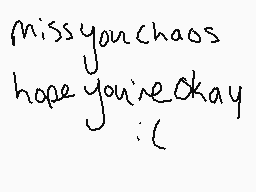 miss you chaos
hope you're okay
:(